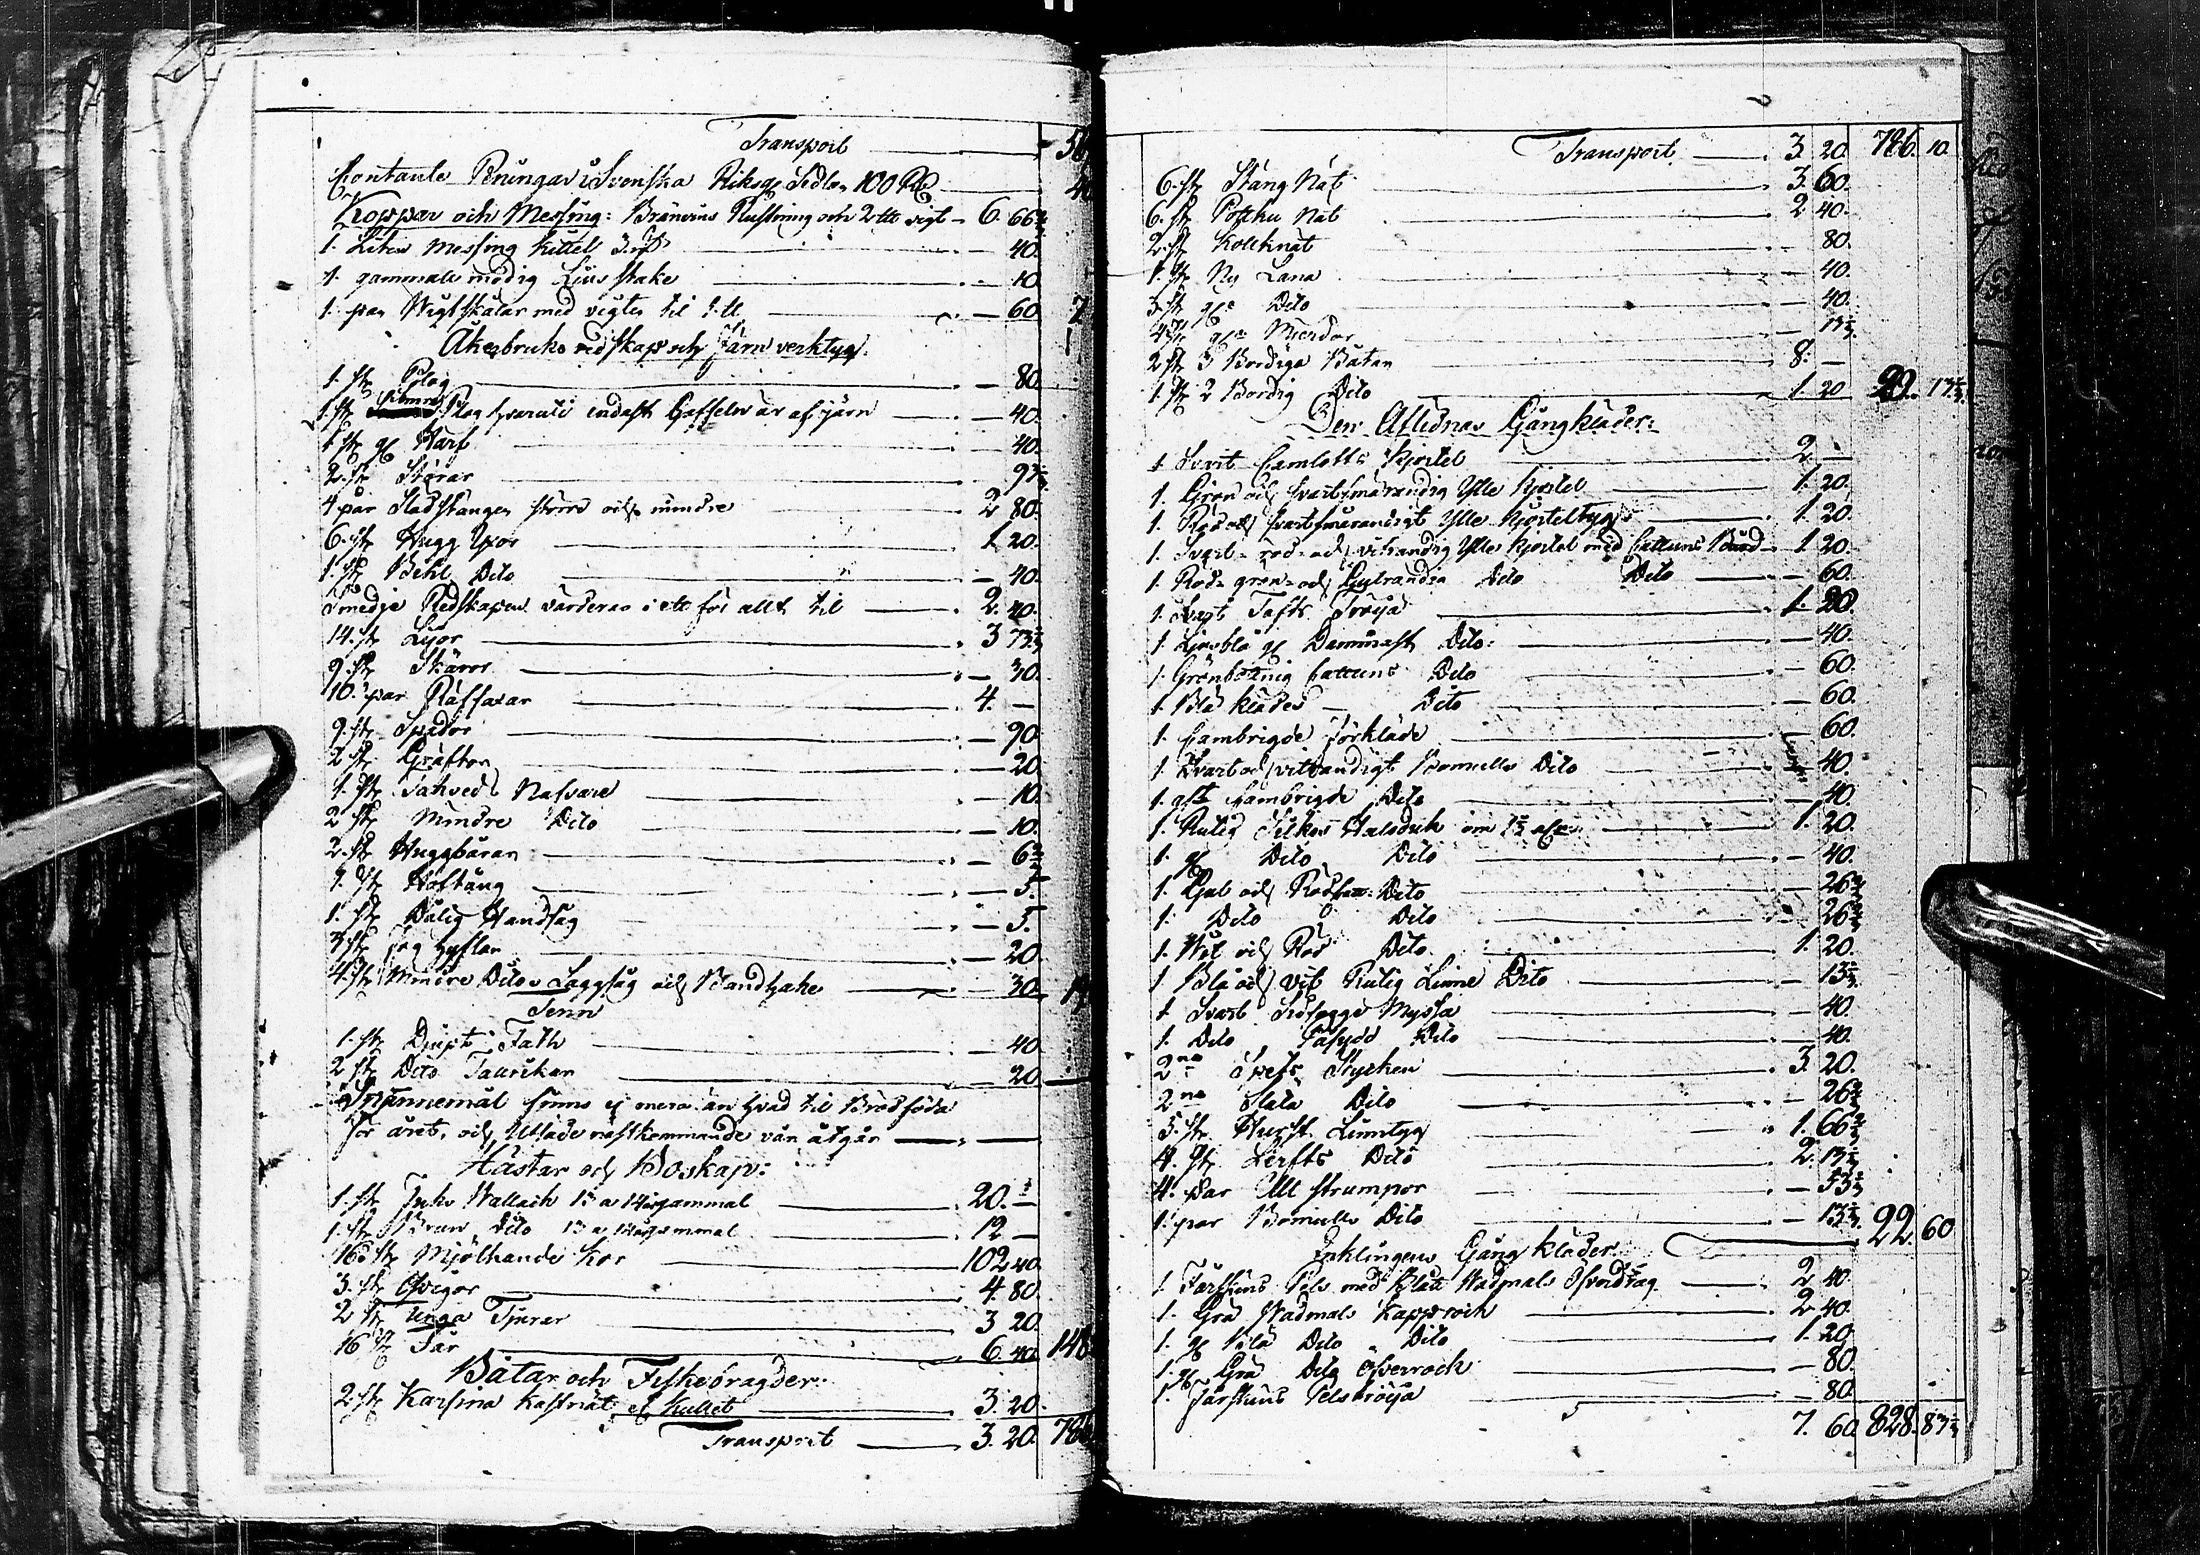 Transport — 56
Contante Peningar i Svenska Riksgs Sedlar 100 Rd — 40
Koppar och Messing: Bränvins Rustning och 2 ttt vigt — 6. 66 2/3
1. Liten Messing Kittel — 40.
1. gammal Ljus stake — 10
1. par Wigtskålar med vigter til — 60 7
Åkerbruks redskap och Järn verktyg.
1. st Plog — 80
1. st Plog hvaruti endast Gaffeln är af järn — 40.
1 st gl Harf — 40.
2. st Störar — 93 1/3
4 par Stadstänger större och mindre — 2 80.
6. st Hugg Yxor — 1 20.
1. st Dito — 40.
Smedje Redskapen värderas i ett för allt til — 2. 40.
14. st Lijor — 3 73 1/3
9. st Skäror — 30.
10. par Räffaxar — 4. —
9. st Spador — 90.
2 st Gräftor — 20.
1. st Nafvare — 10.
2 st Mindre Dito — 10.
2. st Huggbäran — 6 2/3
1. st Hoftång — 5.
1. st Dålig Handsåg — 5.
3 st Hyflar — 20.
4. st Mindre Dito, Laggsåg och Bandhake — 30.
Tenn
1. st Djupt Fath — 40
2 st Dito Taurikar — 20
Spannemål finns ej mera än hvad til Brödföda
för året, och Utsäde nästkommande vår åtgår —
Hästar och Boskap:
1. st Wallach 13 a 14 årgammal — 20. —
1. st Brun Dito 13 a 14 årgammal — 12 —
16. st Mjölkande Kor — 102 40
3. st Qvigor — 4. 80.
2 st Unga Tjurar — 3 20.
16 st Får — 6. 40. 148
Båtar och Fiskebragder:
2 st Karsina Kastnät — 3. 20.
Transport — 3. 20. 786
Transport — 3. 20. 786. 10.
6. st Stång Nät — 3. 60.
6. st Nät — 2 40.
2. st — 80.
1. st Ny Lana — 40.
3 st gle Dito — 40.
4 st gle Mierdor — 13 1/3
2 st 3 Bordiga Båtar — 8. —
1. st 2 Bordig Dito — 1. 20 20. 13 1/3
Den Aflednas Gångkläder:
1 Svart Camlotts Kjortel — 2 —
1. Grön och svart smårandig Ylle Kjortel — 1. 20.
1. Röd och svart smårandigt Ylle Kjorteltyg — 1. 20
1. Svart- röd- och vitrandig Ylle Kjortel med Cattuns Bård — 1 20.
1. Röd- grön- och Gulrandig Dito Dito — 60.
1. Svart Tafts Tröija — 1. 20.
1. Ljusblå gl Dammast Dito: — 40.
1. Grönbotnig Cattuns Dito — 60.
1 Blå klädes Dito — 60.
1. Cambrigde Förkläde — 60.
1. Svart och vitrandigt Bomulls Dito — 40.
1. glt Cambrigde Dito — 40.
1. Rutig Silkes Halsduk om 1 1/2 — 1. 20.
1. gl Dito Dito — 40.
1. Gul och Rödrut: Dito — 26 2/3
1. Dito Dito — 26 2/3
1. Wit och Röd Dito — 1. 20.
1 Blå och vit Rutig Linne Dito — 13 1/3
1 Svart Myssa — 40.
1. Dito Dito — 40.
2ne Stycken — 3. 20.
2ne Släta Dito — 26 2/3
5. st Linntyg — 1. 66 2/3
4. st Lärfts Dito — 2. 13 1/3
4. par Ull strumpor — 53 1/3
1. par Bomulls Dito — 13 1/3 22 60
Enklingens Gång kläder:
1. Fårskins Pels med Blått Wadmals Öfverdrag — 2 40.
1. Grå Wadmals Kapprock — 2 40.
1. gl Blå Dito Dito — 1. 20.
1. gl Grå Dito Öfverrock — 80.
1. Fårskins Pelströija — 80.
7. 60. 828. 83 1/3